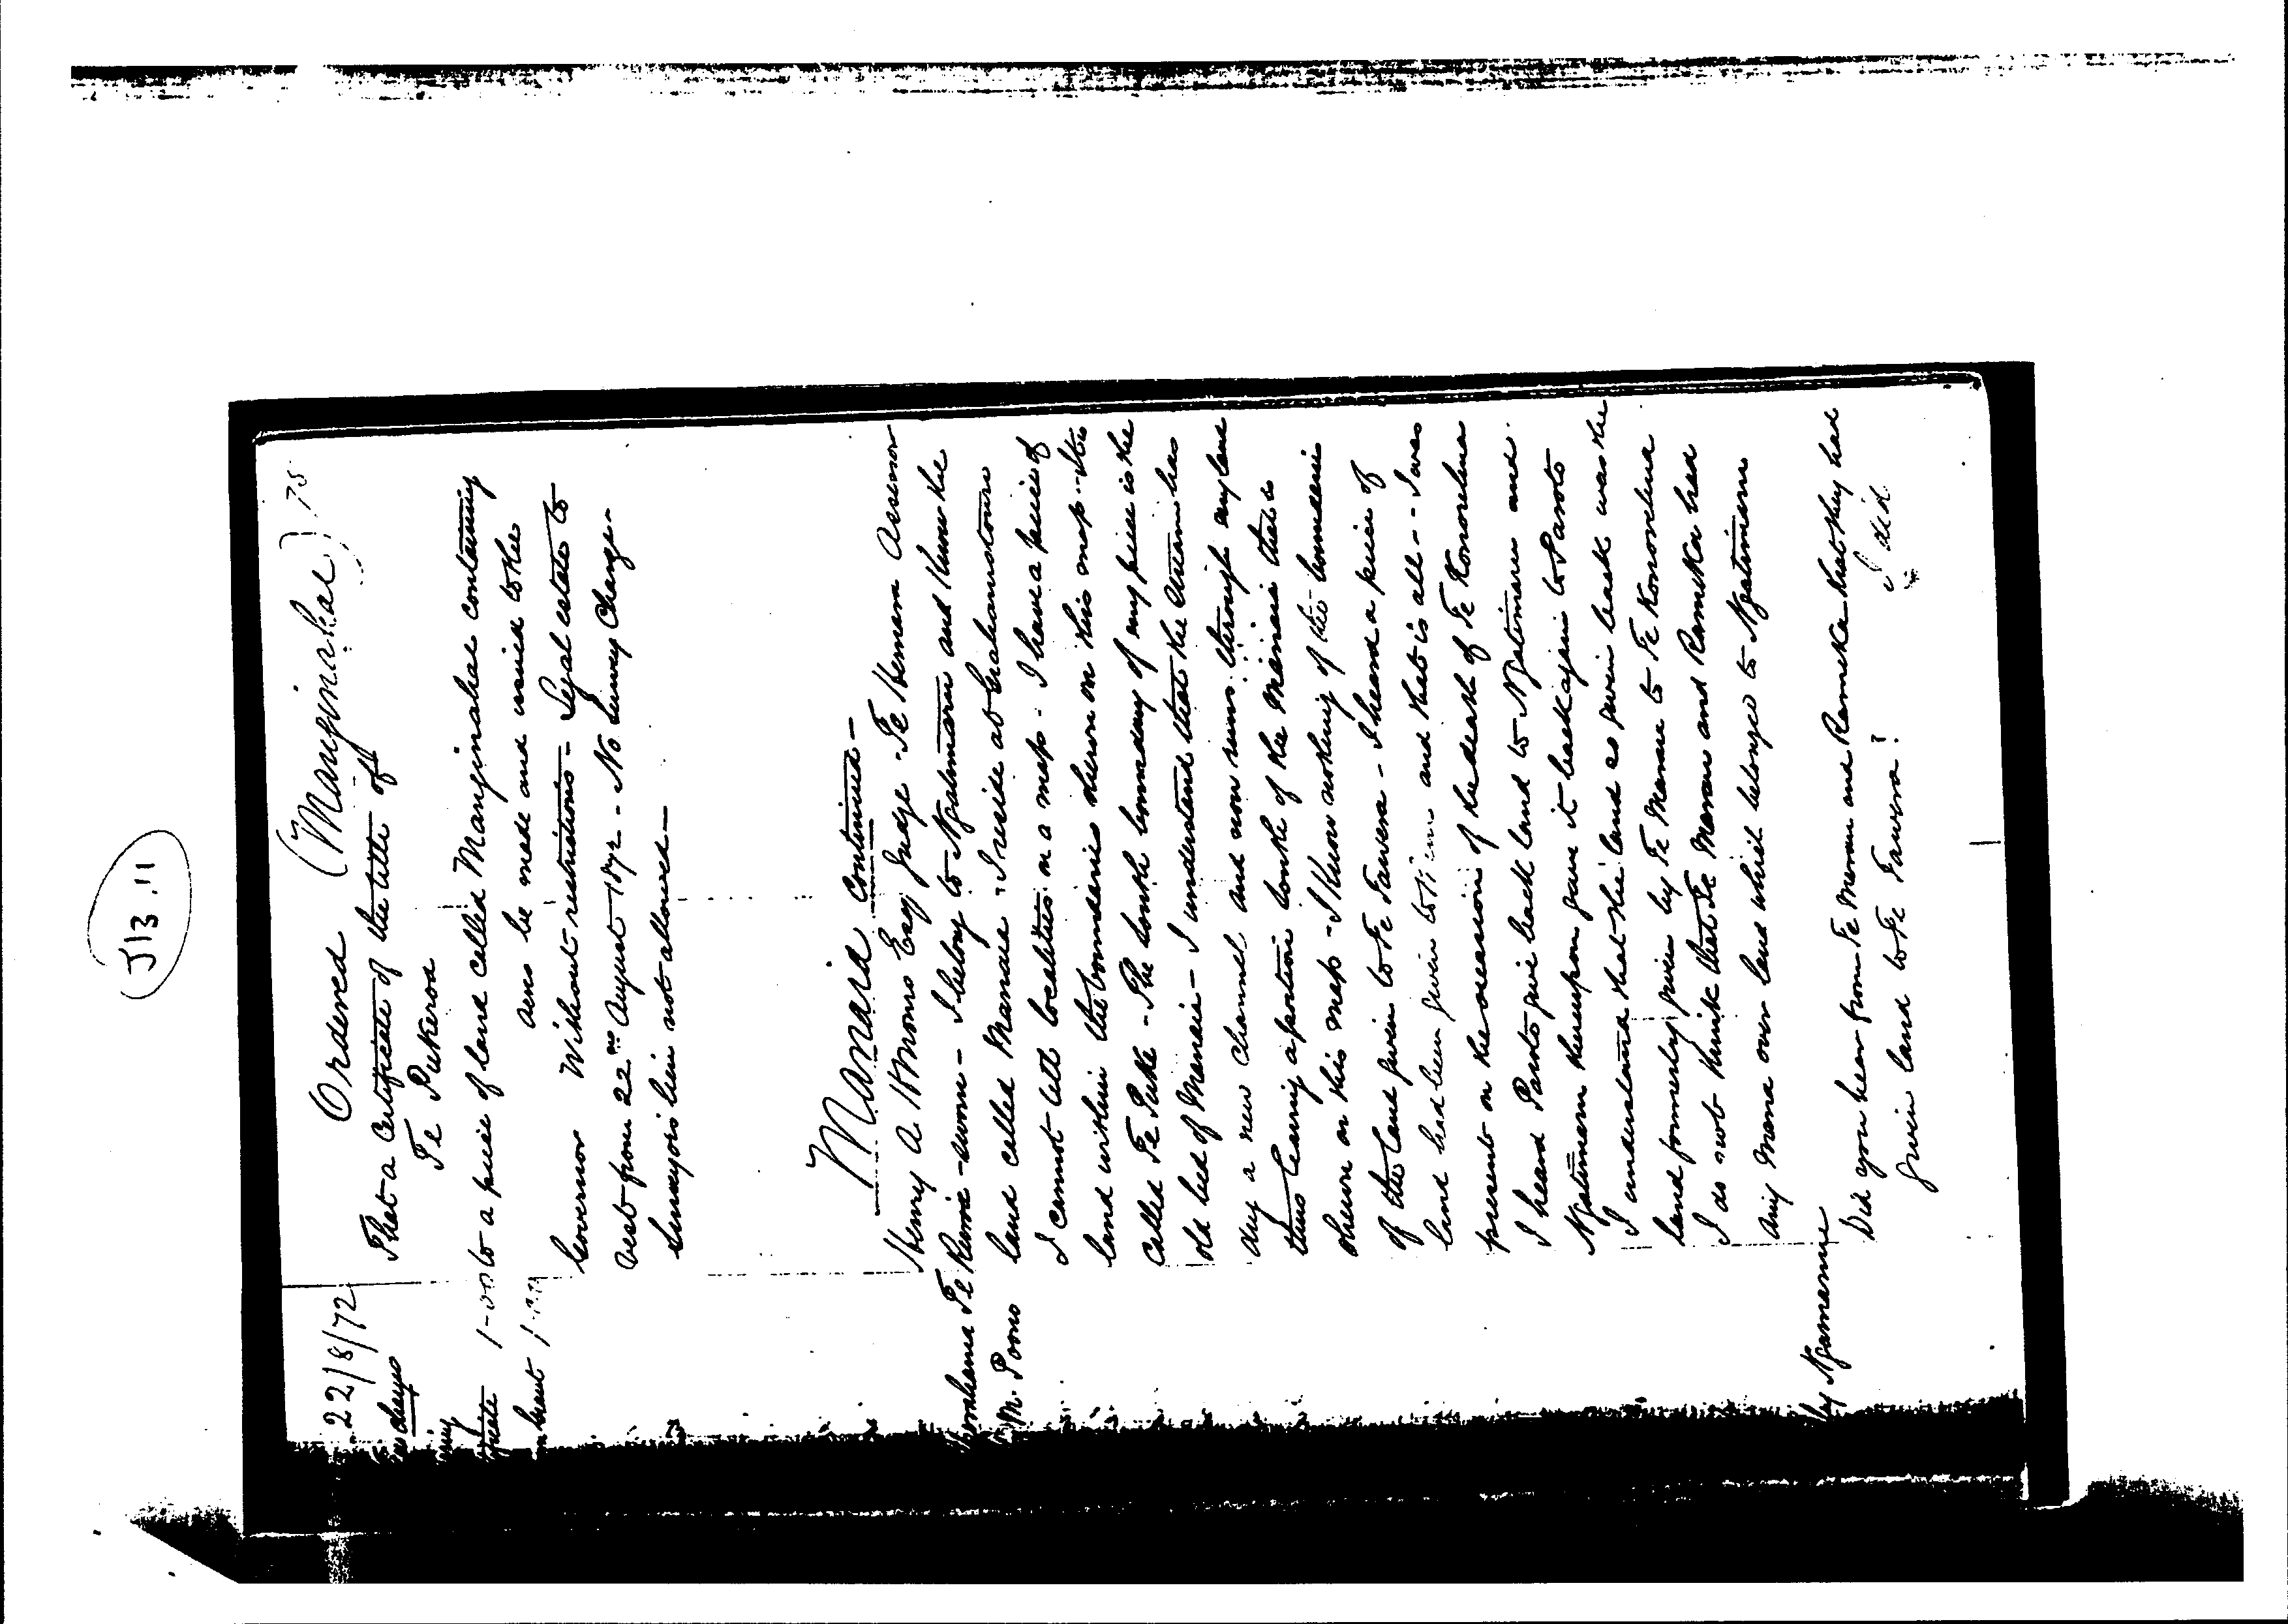 J13.11
22/8/72 Ordered (Manginahae) 75
That a Certificate of the title of
Te Pukeroa
to a piece of land called Manginahae containing
acres be made and issued to the
Governor Without restrictions - Legal estate to
vest from 22nd August 1872 - No Survey Charge -
Surveyors lien not allowed -
Manaia continued -
Henry A H Monro Esq Judge - Te Hemara Assessor
Te - sworn - I belong to Ngatimaru and know the
land called Manaia - I reside at Grahamstown
I cannot tell localities on a map - I have a piece of
land within the boundaries shewn on this map - It is
called Te Puke - The South boundary of my piece is the
old bed of Manaia - I understand that the stream has
dug a new channel and now runs through my land
thus leaving a portion South of the Manaia that is
shewn on this map - I know nothing of the boundaries
of the land given to Te Tawera - I heard a piece of
land had been given to them and that is all - - I was
present on the occasion of the death of Te Konorehua
I heard Paroto give back land to Ngatimaru and
Ngatimaru thereupon gave it back again to Paroto
I understand that the land so given back was the
land formerly given by Te Merau to Te Konorehua
I do not think that Te Merau and Rameka had
any mana over land which belonged to Ngatimaru
By Ngamanu
Did you hear from Te Merau and Rameka that they had
given land to Te Tawera? I did